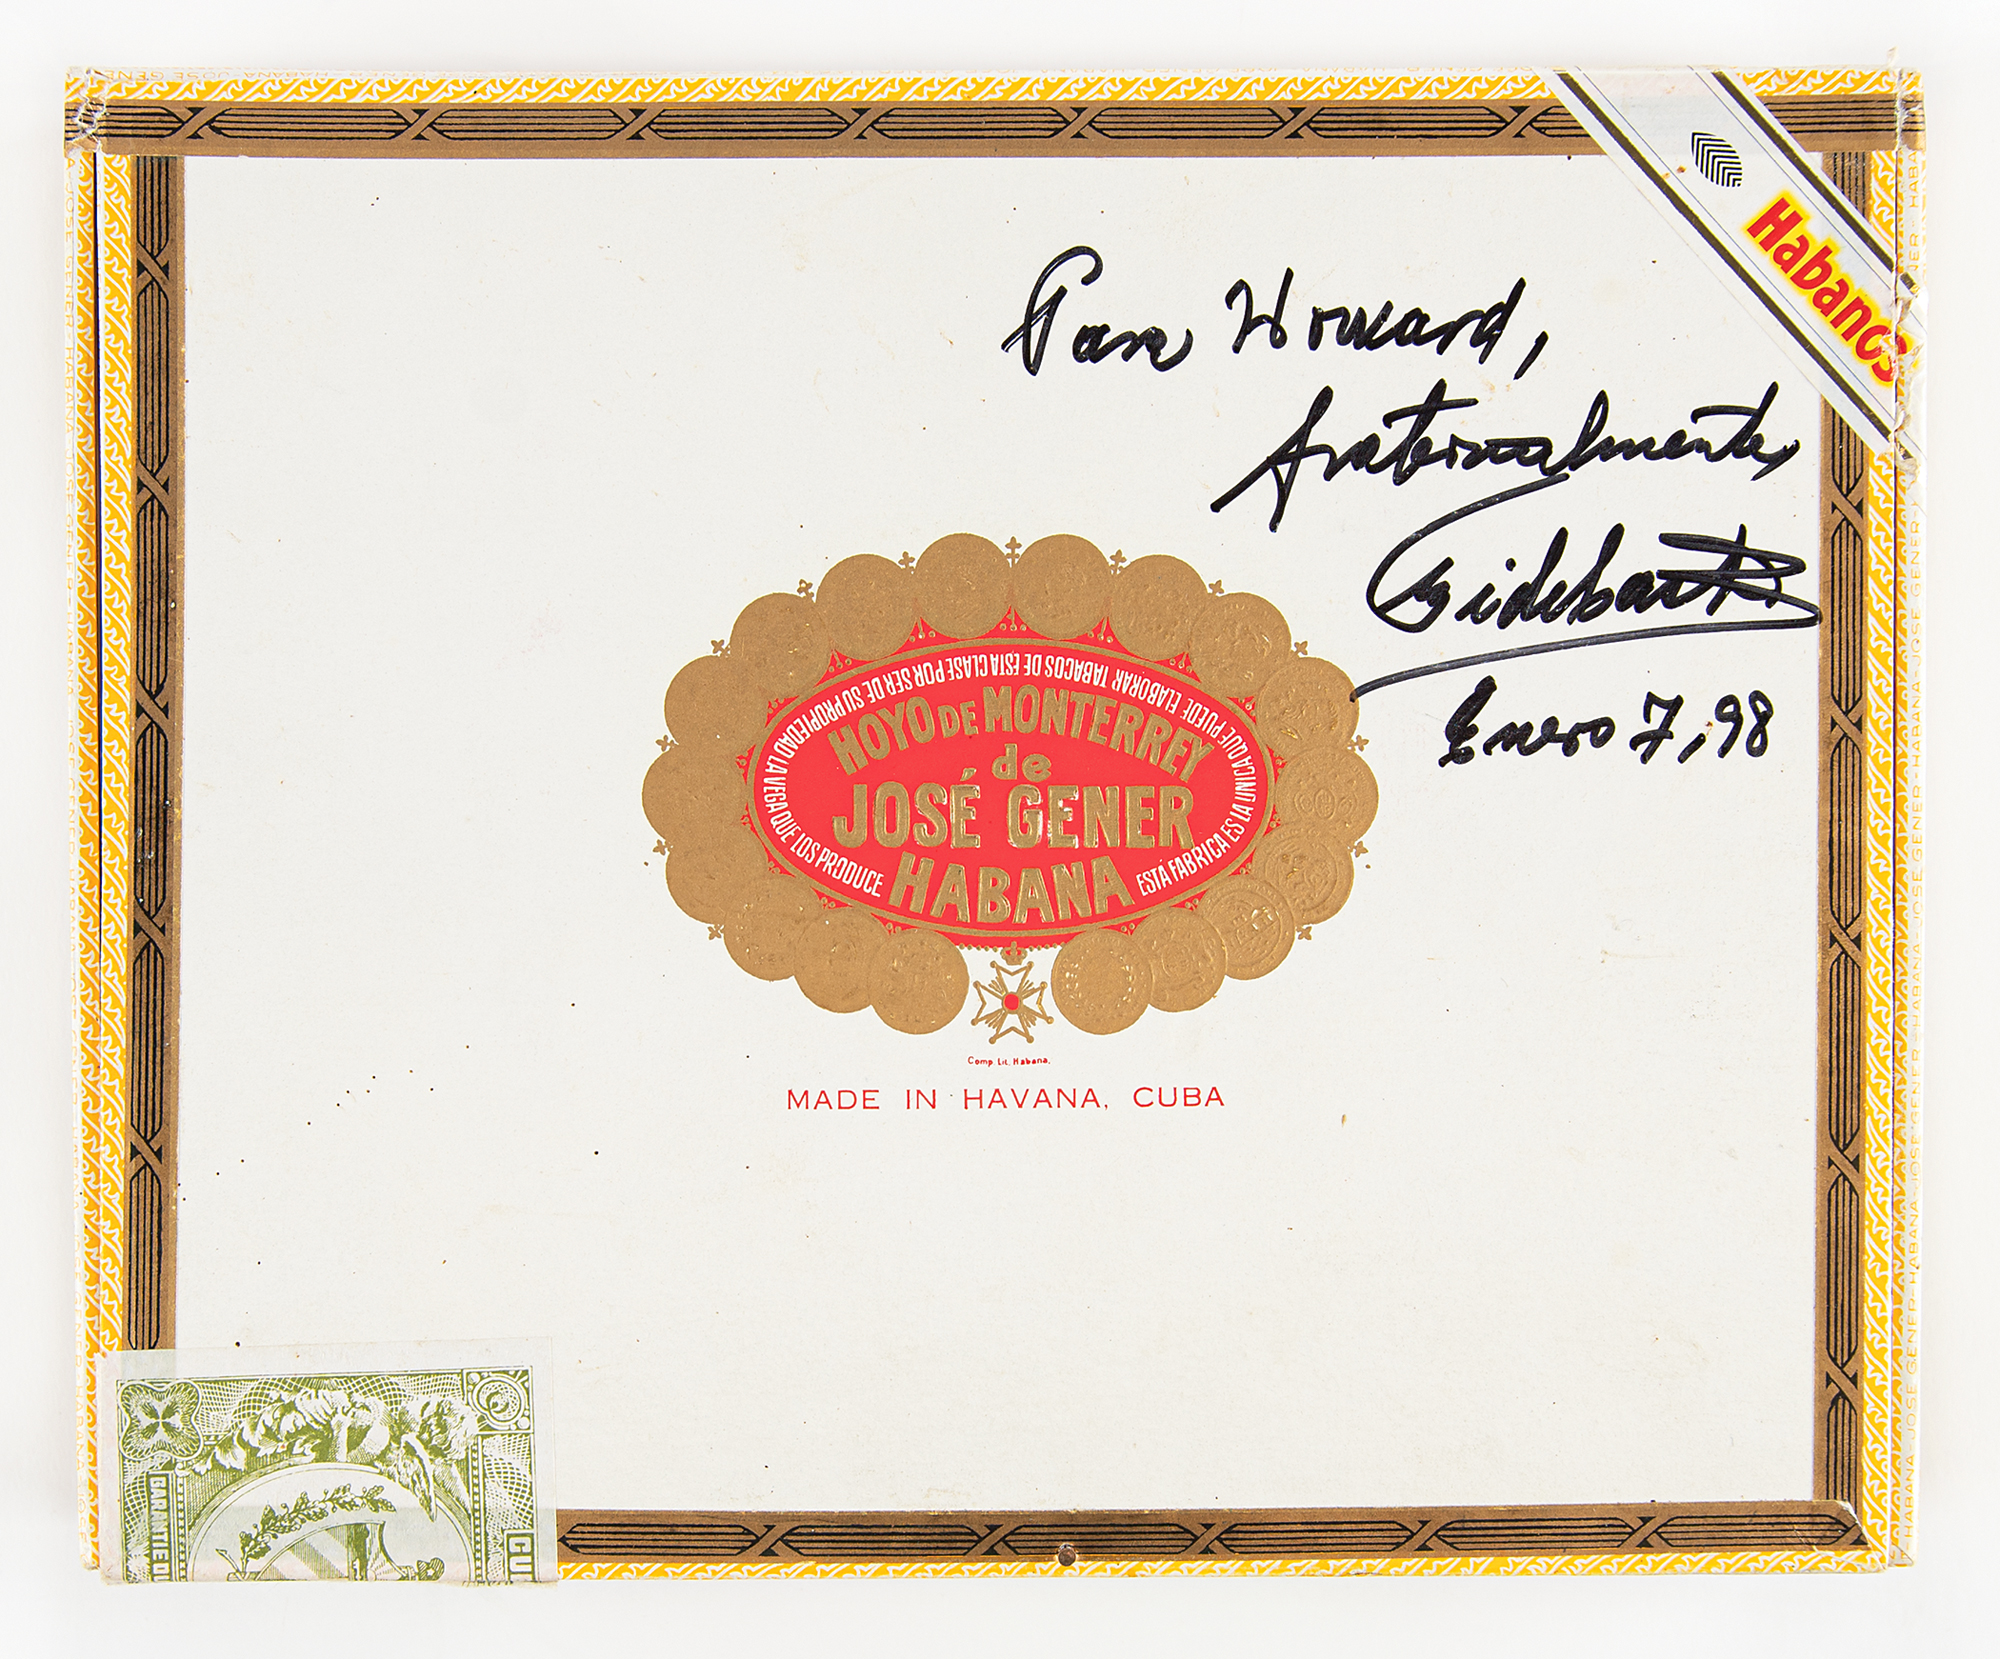 Habanos
Para Howard,
fraternalmente,
Fidel Castro
Enero 7, 98
LA VEGA QUE LOS PRODUCE ESTA FABRICA ES LA UNICA QUE PUEDE ELABORAR TABACOS DE ESTA CLASE POR SER DE SU PROPIEDAD
HOYO DE MONTERREY
de
JOSÉ GENER
HABANA
Comp. Lit. Habana.
MADE IN HAVANA, CUBA
JOSE GENER-HABANA-JOSE GENER-HABANA